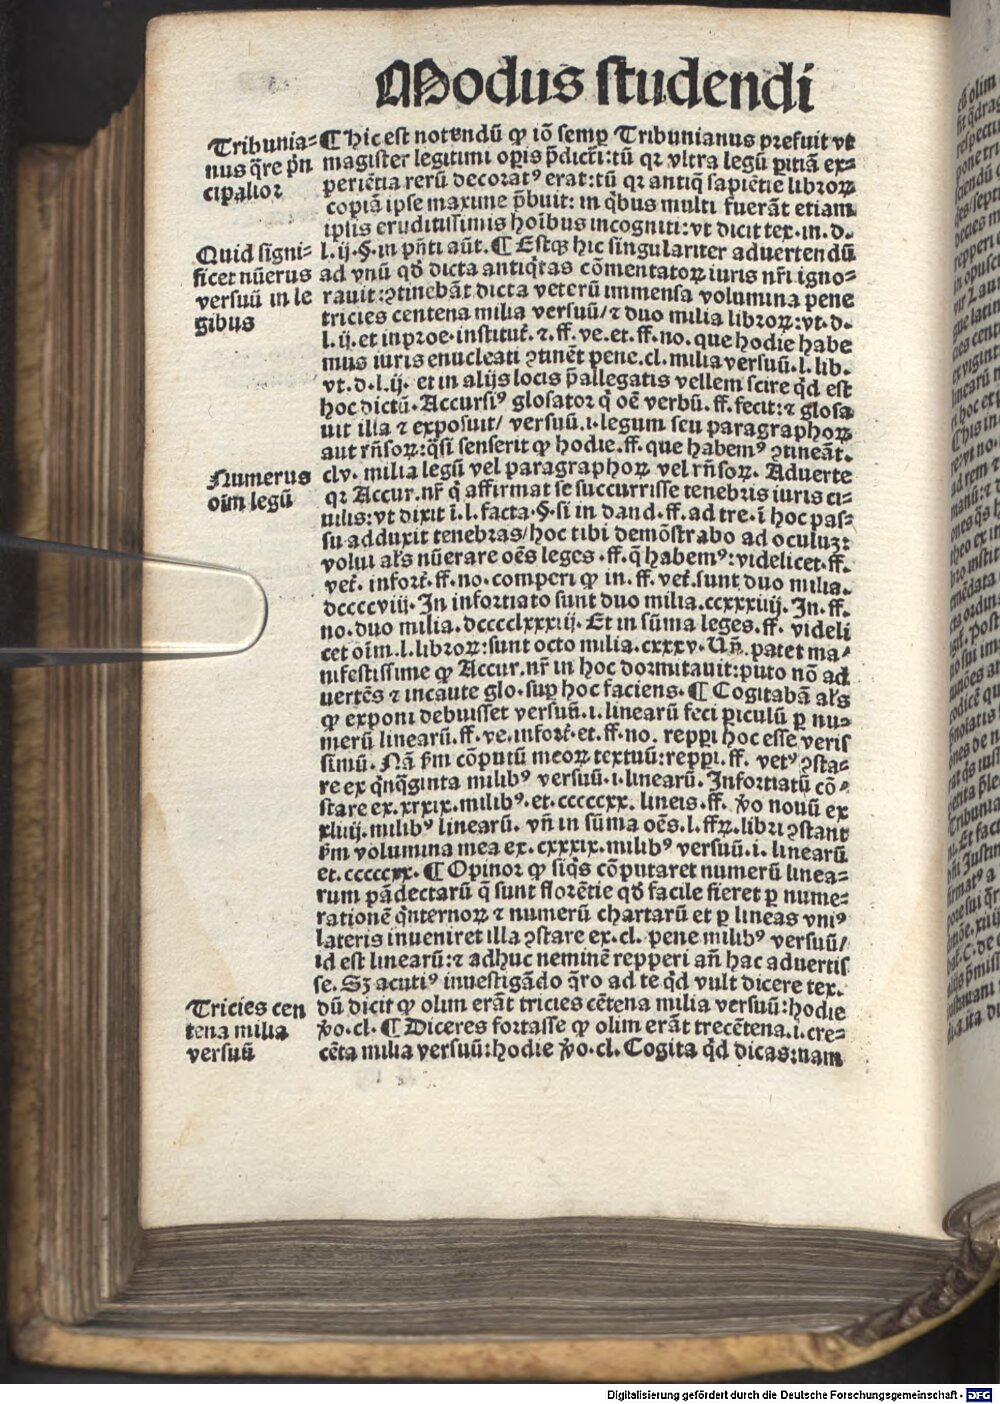 Modus studendi
Tribunia-
nus q̄re p̄n
cipalior
¶ Hic est notendū ꝙ iō semꝑ Tribunianus prefuit vt
magister legitimi oꝑis p̄dicti: tū qꝛ vltra legū ꝑitiā ex-
periētia rerū decoratꝰ erat: tū qꝛ antiq̄ sapiētie libroꝝ
copiā ipse maxime p̄buit: in q̇bus multi fuerāt etiam
ipsis eruditissimis hoībus incogniti: vt dicit tex. in. d.
Quid signi-
ficet nūerus
versuū in le
gibus
l. ij. §. in pn̄ti aūt. ¶ Estqꝫ hic singulariter aduertendū
ad vnū qđ dicta antiq̇tas cōmentatoꝝ iuris nr̄i igno-
rauit: ꝯtinebāt dicta veterū immensa volumina pene
tricies centena milia versuū/ ⁊ duo milia libroꝝ: vt. d.
l. ij. et in proe. institut̄. ⁊. ff. ve. et. ff. no. que hodie habe
mus iuris enucleati ꝯtinēt pene. cl. milia versuū. l. lib.
vt. d. l. ij. et in alijs locis p̄allegatis vellem scire q̇d est
hoc dictū. Accursiꝰ glosator q̇ oē verbū. ff. fecit: ⁊ glosa
uit illa ⁊ exposuit/ versuū. i. legum seu paragraphoꝝ
aut rn̄soꝝ: q̄si senserit ꝙ hodie. ff. que habemꝰ ꝯtineāt.
Numerus
oīm legū
clv. milia legū vel paragraphoꝝ vel rn̄soꝝ. Aduerte
qꝛ Accur. nr̄ q̇ affirmat se succurrisse tenebris iuris ci-
uilis: vt dixit ī. l. facta. §. si in dand. ff. ad tre. ī hoc pas-
su adduxit tenebras/ hoc tibi demōstrabo ad oculuꝫ:
volui als̄ nūerare oēs leges. ff. q̄ habemꝰ: videlicet. ff.
vet̄. infort̄. ff. no. comperi ꝙ in. ff. vet̄. sunt duo milia.
dcccccviij. In infortiato sunt duo milia. ccxxxiiij. In. ff.
no. duo milia. dcccclxxxiij. Et in sūma leges. ff. videli
cet oīm. l. libroꝝ: sunt octo milia. cxxxv. Un̄. patet ma-
nifestissime ꝙ Accur. nr̄ in hoc dormitauit: puto nō ad
vertēs ⁊ incaute glo. suꝑ hoc faciens. ¶ Cogitabā als̄
ꝙ exponi debuisset versuū. i. linearū feci ꝑiculū ꝑ nu-
merū linearū. ff. ve. infort̄. et. ff. no. repperi hoc esse veris
simū. Nā s̄m cōputū meoꝝ textuū: repperi. ff. vetꝰ ꝯsta-
re ex q̇nq̄ginta milibꝰ versuū. i. linearū. Infortiatū cō-
stare ex. xxxix. milibꝰ. et. ccccccxx. lineis. ff. v̄o nouū ex
xliiij. milibꝰ linearū. vn̄ in sūma oēs. l. ff̄ꝝ. libri ꝯstant
s̄m volumina mea ex. cxxxix. milibꝰ versuū. i. linearū
et. ccccccxx. ¶ Opinor ꝙ siq̇s cōputaret numerū linea-
rum pādectarū q̄ sunt florētie qđ facile fieret ꝑ nume-
rationē q̇nternoꝝ ⁊ numerū chartarū et ꝑ lineas vniꝰ
lateris inueniret illa ꝯstare ex. cl. pene milibꝰ versuū/
id est linearū: ⁊ adhuc neminē repperi an̄ hac aduertis
se. Sꝫ acutiꝰ inuestigādo q̄ro ad te q̇d vult dicere tex.
Tricies cen
tena milia
versuū
dū dicit ꝙ olim erāt tricies cētena milia versuū: hodie
v̄o. cl. ¶ Diceres fortasse ꝙ olim erāt trecētena. i. cre-
cēta milia versuū: hodie v̄o. cl. Cogita q̇d dicas: nam
Digitalisierung gefördert durch die Deutsche Forschungsgemeinschaft - DFG